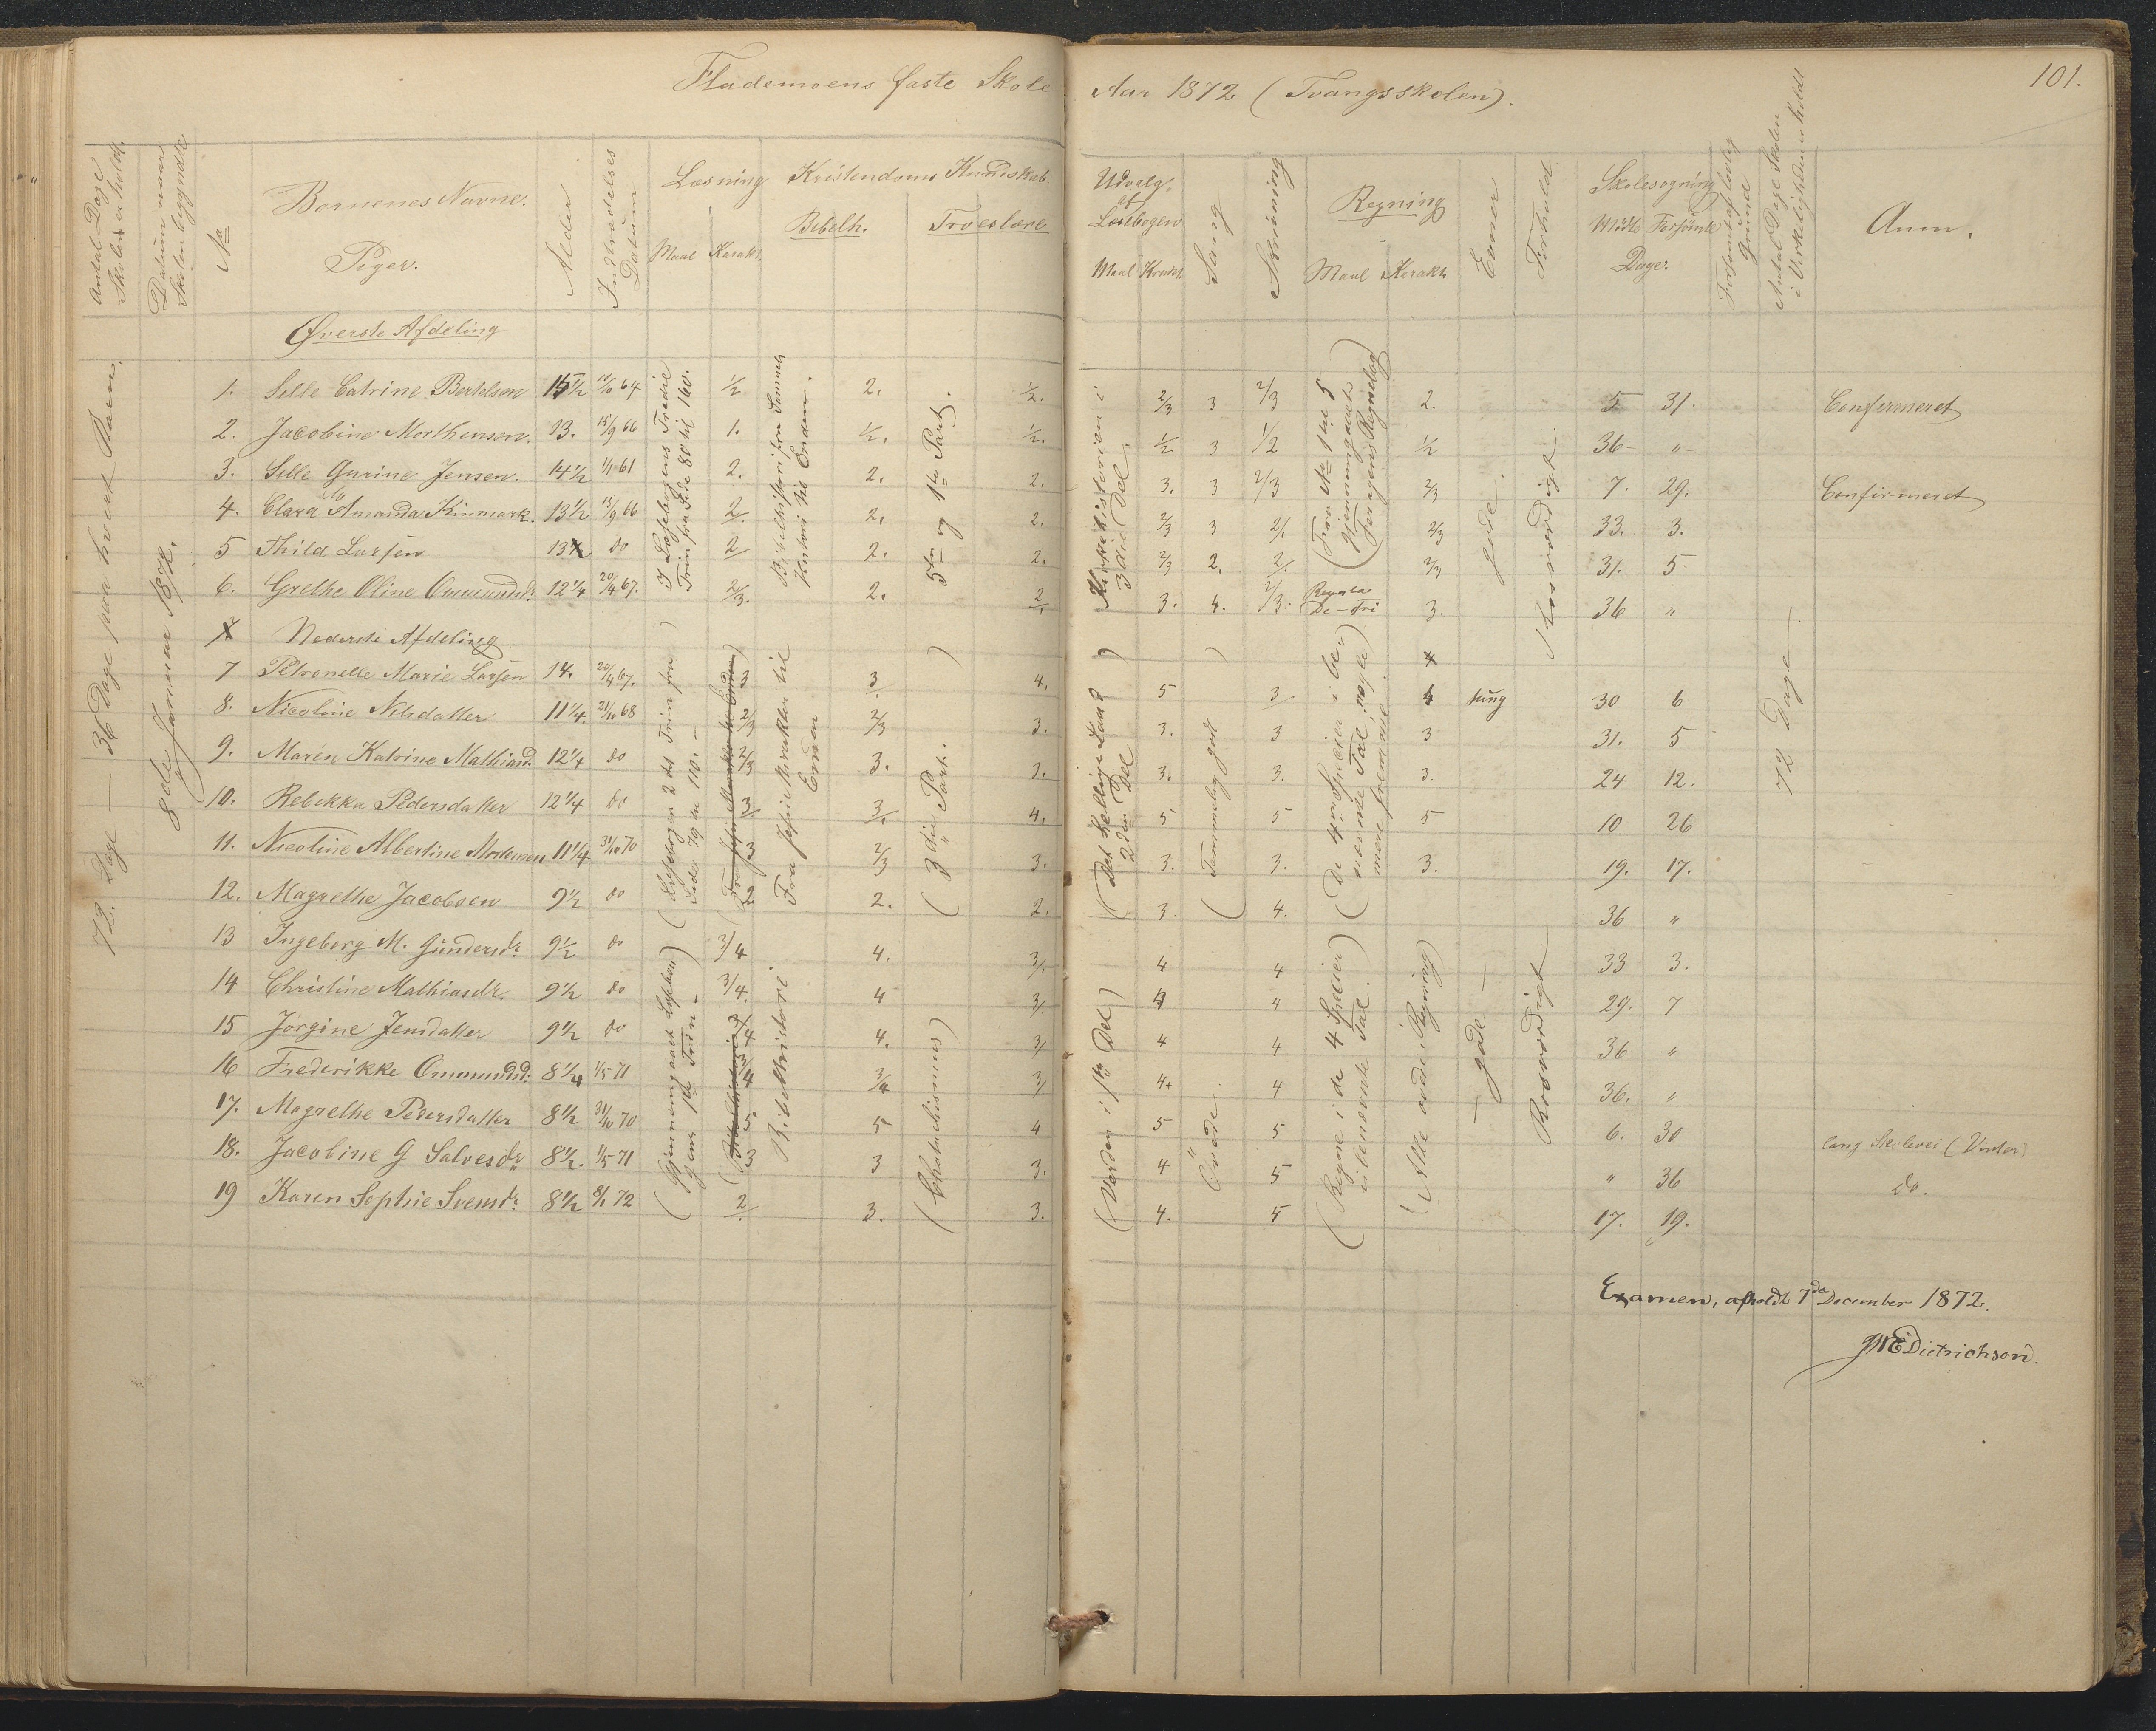 Flademoens faste Skole Aar 1872 (Tvangsskolen). 101.
Antal Dage Skolen er holdt.
Datum naar Skolen begyndte
No
Børnenes Navne. Piger.
Alder
Indtrædelses Datum
Læsning Maal Karakt.
Kristendoms Kundskab.
Bibelh. Troeslære
Udvalg af Læsebogen Maal Karakt.
Sang
Skrivning
Regning Maal Karakt.
Evner
Forhold
Skolesøgning Mødte Forsømte Dage.
Antal Dage Skolen i Virkeligheden er holdt
Anm.
72 Dage — 36 Dage paa hvert Rum.
8de Januar 1872.
Øverste Afdeling
1. Sille Catrine Bertelsen 15 1/2 64 1/2 2. 1/2. 2/3 3 2/3 2. 5 31. Confirmeret
2. Jacobine Morthensen. 13. 15/9 66 1. 1/2. 1/2. 1/2 3 1/2 1/2 36 - " -
3. Sille Gurine Jensen. 14 1/2 1/1 61 2. 2. 2. 3. 3 2/3 2/3 7. 29. Confirmeret
4. Clara Amanda Kinmark. 13 1/2 15/9 66 2. 2. 2. 2/3 3 2/. 2/3 33. 3.
5 Thild Larsen 13 do 2 2. 2. 2/3 2. 2/. 2/3 31. 5
6. Grethe Oline Ommundsd. 12 1/4 20/4 67. 2/3. 2. 2 3. 4. 2/3. 3. 36 "
I Læsebogens Tredie Trin fra Side 80 til 160.
5te og 1ste Part.
Kirkehistorien i 3die Del.
(Fra No 1 til 5 Gjennemgaaet Jørgens Regnebog)
gode.
Nederste Afdeling
7 Petronelle Marie Larsen 14. 20/4 67. 3 3 4. 5 3 4 tung 30 6
8. Nicoline Nilsdatter 11 1/4. 21/10 68 2/3 2/3 3. 3. 3 3 31. 5
9. Maren Katrine Mathiasd. 12 1/4 do 2/3 3. 3. 3. 3. 3. 24 12.
10. Rebekka Pedersdatter 12 1/4 do 3 3. 4. 5. 5 5 10 26
11. Nicoline Albertine Mortensen 11 1/4 31/10 70 3 2/3 3. 3. 3. 3. 19. 17.
12. Magrethe Jacobsen 9 1/2 do 2 2. 2. 3. 4. 36 "
(Læsebogen 2det Trin fra Side 79 til 110. -
Enden
(3die Part.)
(Det hellige Land 2den Del)
(Temmelig godt)
(De 4re Specier i benævnte Tal
72 Dage.
13 Ingeborg M. Gundersd. 9 1/2 do 3/4 4. 3/. 4 4 33 3.
14 Christine Mathiasdr. 9 1/2 do 3/4. 4 3/. 4 4 29. 7
15 Jørgine Jensdatter 9 1/2 do 4 4. 3/ 4 4 36 "
16 Frederikke Ommundsd. 8 1/4 1/5 71 3/4 3/4 3/ 4+ 4 36. "
17. Magrethe Pedersdatter 8 1/2 31/10 70 5 5 4 5 5 6. 30 lang Skolevei (Vinter)
18. Jacobine G Salvesdr. 8 1/2. 1/5 71 3 3 3. 4 5 " 36 do.
19 Karen Sophie Svensdr. 8 1/2 8/1 72 2 3. 3. 4. 5 17. 19.
(Gjennemgaaet Læsebogens 1ste Trin -
Bibelhistorie
(Chatechismus)
(Verden i 1ste Del)
Øvede
(Regne i de 4 Specier i ubenævnte Tal.)
(Alle øvede i Regning)
— gode —
Rosværdigt
Examen, afholdt 7de December 1872.
JMEDietrichson.